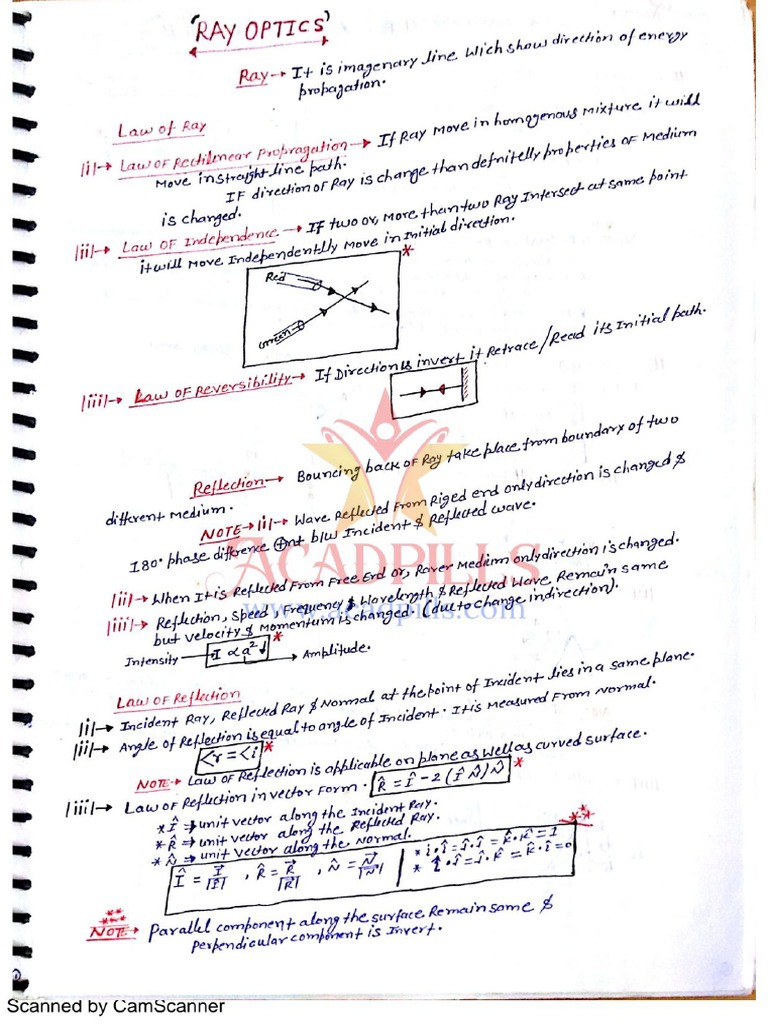 'RAY OPTICS'
Ray → It is imagenary line Wich show direction of energy
propagation.
Law of Ray
|i|→ Law of Rectilinear Propragation → If Ray Move in homogenous Mixture it will
Move in straight line path.
IF direction of Ray is change than definitelly properties of Medium
is changed.
|ii|→ Law OF Independence → If two or, More than two Ray Intersect at same point
it will Move Independentlly Move in Initial direction.
*
Red
Green
|iii|→ Law OF Reversibility → If Direction is invert it Retrace/Read its Initial path.
Reflection → Bouncing back of Ray take place from boundary of two
different Medium.
NOTE → |i|→ Wave Reflected From Riged end only direction is changed &
180° phase difference b/w Incident & Reflected wave.
ACADPILLS
www.acadpills.com
|ii|→ When It is Reflected From Free End or, Rarer Medium only direction is changed.
|iii|→ Reflection, speed, Frequency & Wavelength & Reflected Wave Remain same
but velocity & Momentum is changed. (due to change in direction).
Intensity → I ∝ a² * → Amplitude.
Law of Reflection
|i|→ Incident Ray, Reflected Ray & Normal at the point of Incident lies in a same plane.
|ii|→ Angle of Reflection is equal to angle of Incident. It is Measured From Normal.
<r = <i *
NOTE → Law of Reflection is applicable on plane as well as curved surface.
|iii|→ Law of Reflection in vector Form. R̂ = Î - 2 (Î N̂) N̂ *
* Î ⇒ unit vector along the Incident Ray.
* R̂ ⇒ unit vector along the Reflected Ray.
* N̂ ⇒ unit vector along the Normal.
Î = I⃗/|I⃗| , R̂ = R⃗/|R⃗| , N̂ = N⃗/|N⃗| | * î.î = ĵ.ĵ = k̂.k̂ = 1
* î.ĵ = ĵ.k̂ = k̂.î = 0
NOTE → Parallel component along the surface Remain same &
Perpendicular component is Invert.
Scanned by CamScanner